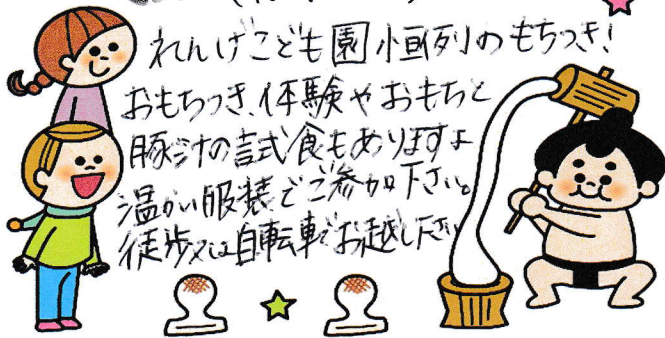 れんげこども園恒例のもちつき！
おもちつき、体験やおもちと
豚汁の試食もありますよ
温かい服装でご参加下さい。
徒歩又は自転車でお越し下さい